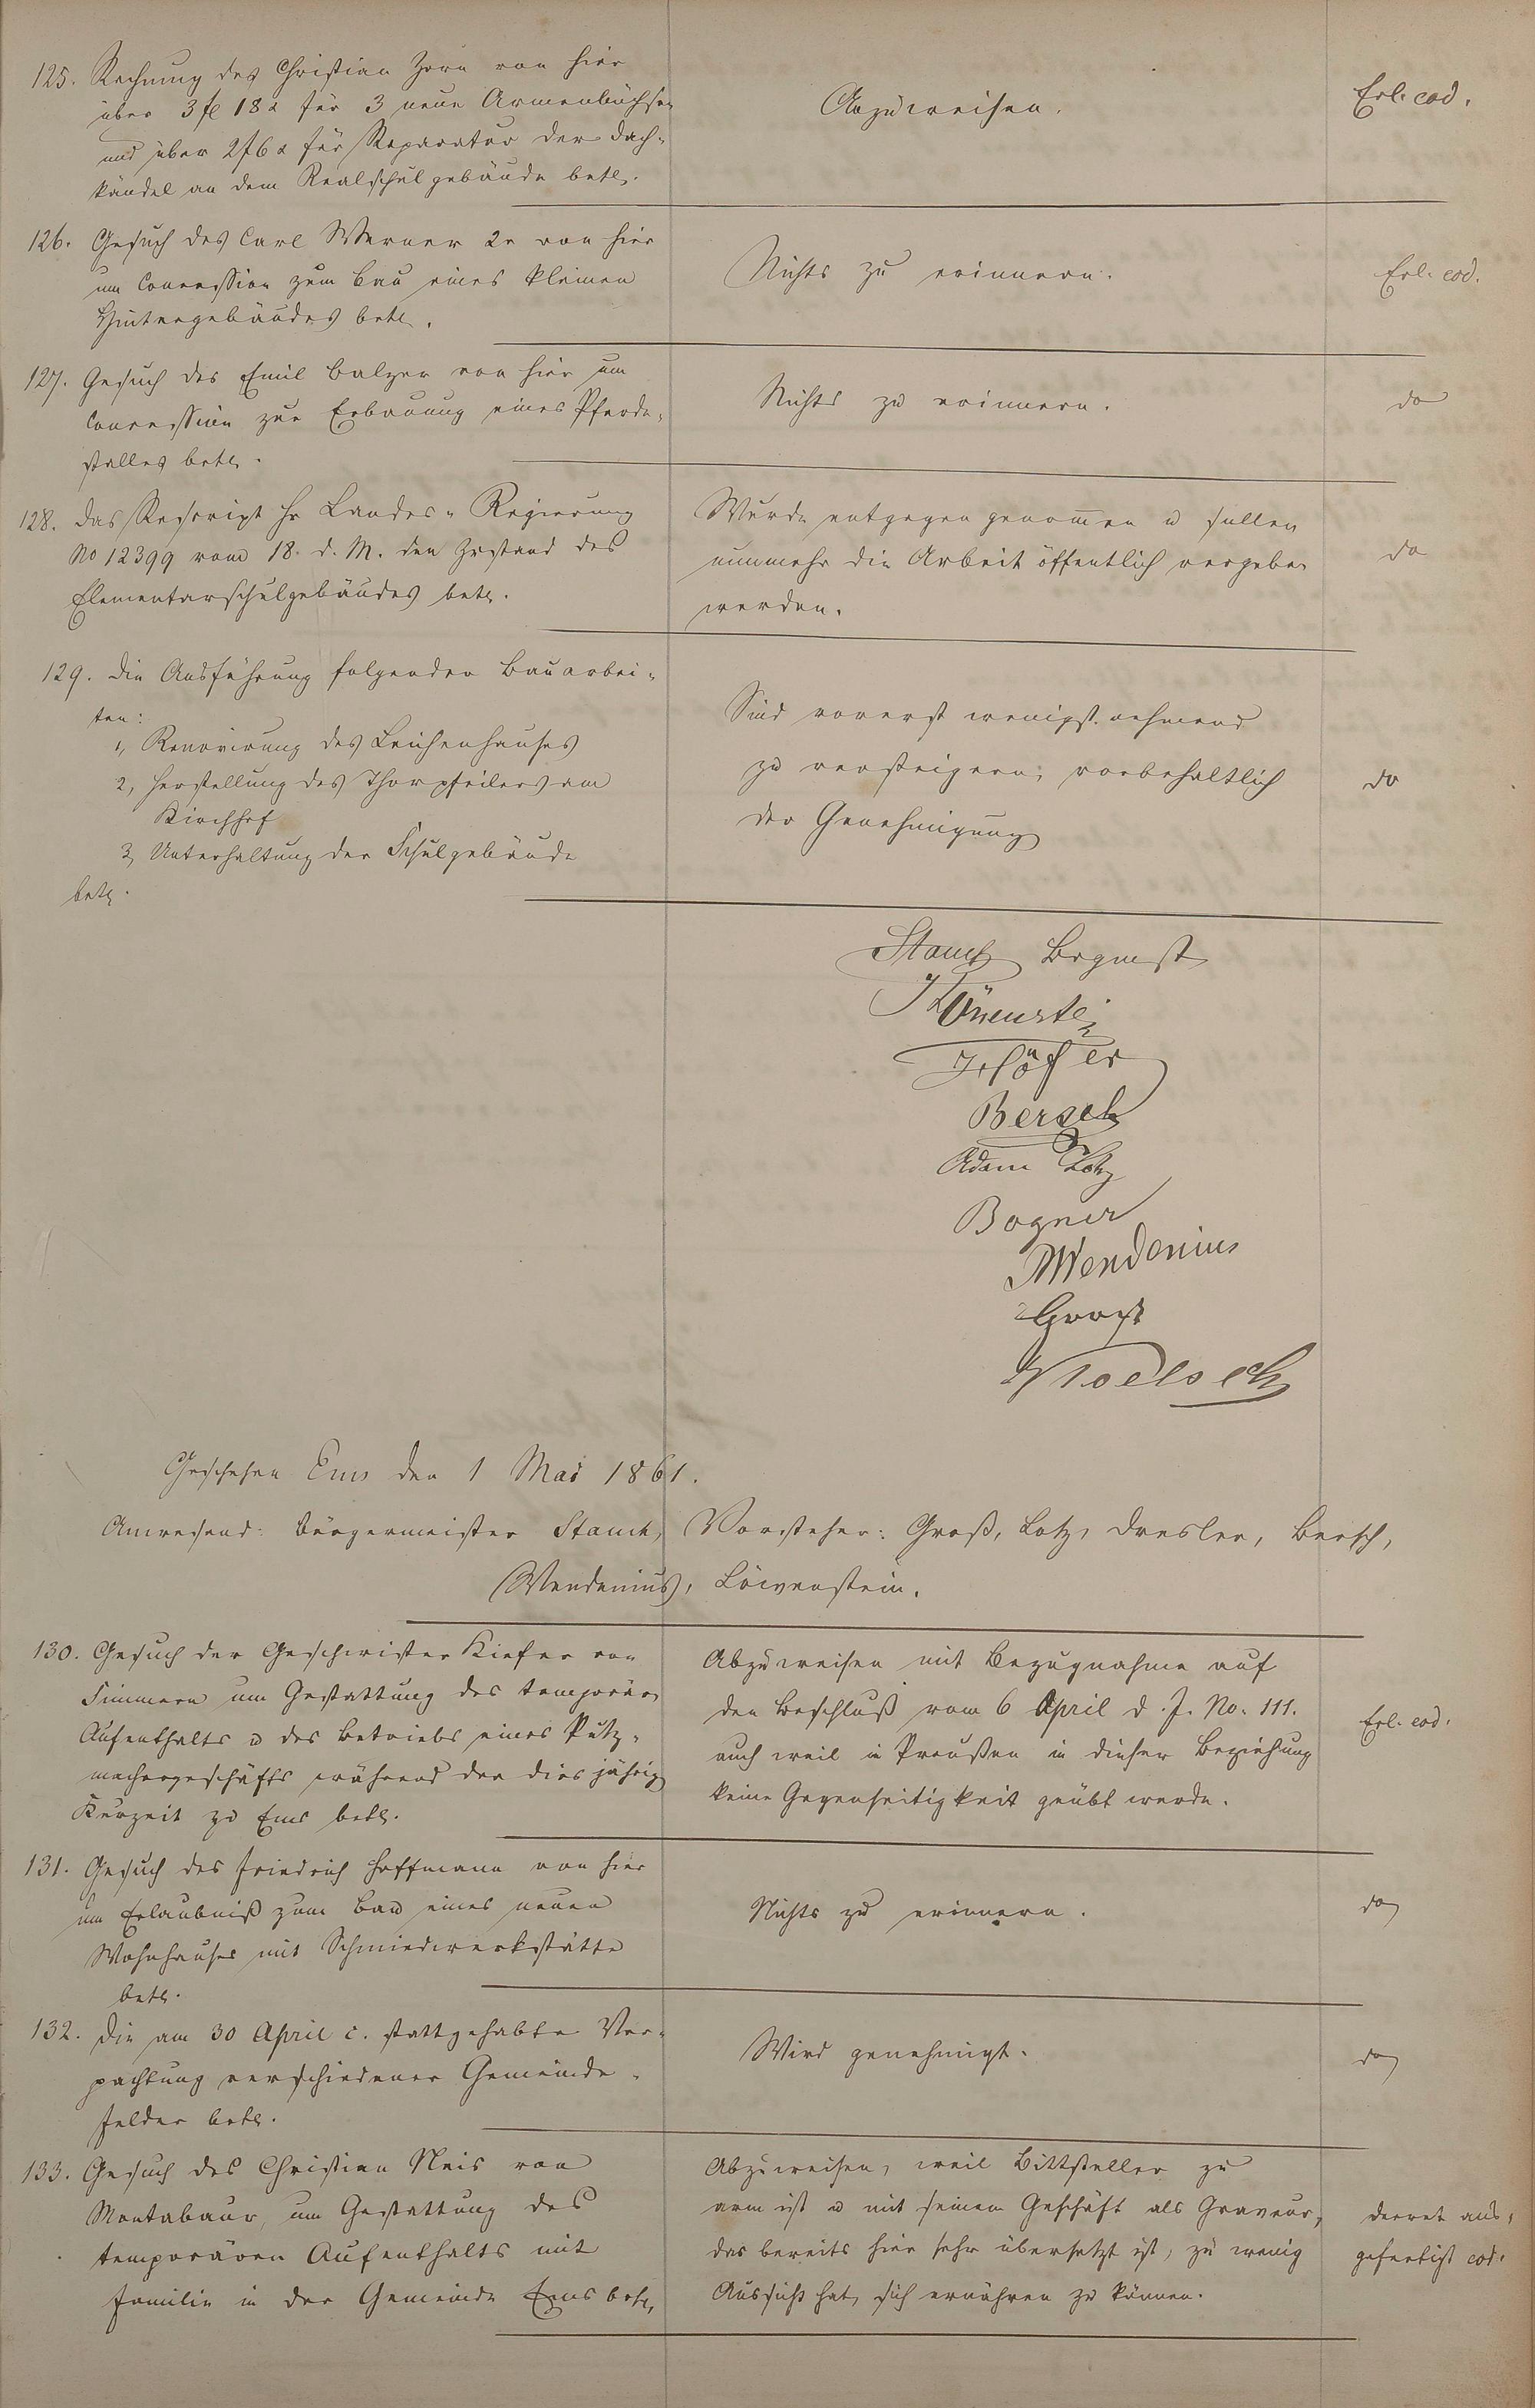 125. Rechnung des Christian Zorn von hier
über 3 fl 18 x für 3 neue Armenbüchsen
und über 2 f 6 x für Reparatur der Dach-
kändel an dem Realschulgebäude betr.
Abzuweisen.
Erl. eod.
126. Gesuch des Carl Werner 2r von hier
um Concession zum Bau eines kleinen
Hintergebäudes betr.
Nichts zu erinnern.
Erl. eod.
127. Gesuch des Emil Balzer von hier um
Concession zur Erbauung eines Pferde-
stalles betr.
Nichts zu erinnern.
do
128. Das Rescript Hr Landes-Regierung
No 12399 vom 18. d. M. den Zustand des
Elementarschulgebäudes betr.
Wurde entgegen genommen u sollen
nunmehr die Arbeit öffentlich vergeben
werden.
do
129. Die Ausführung folgender Bauarbei-
ten:
1, Renovirung des Leichenhauses
2, Herstellung des Thorpfeilers am
Kirchhof
3, Unterhaltung der Schulgebäude
betr.
Sind vorerst wenigst. nehmend
zu versteigern, vorbehaltlich
der Genehmigung
do
Stauch Brgmst
Höfer
Bersch
Adam Lotz
Bogner
Wendenius
Groß
Geschehen Ems den 1 Mai 1861.
Anwesend: Bürgermeister Stauch, Vorsteher: Groß, Lotz, Dresler, Bersch,
Wendenius, Löwenstein.
130. Gesuch der Geschwister Kiefer von
Simmern um Gestattung des temporären
Aufenthalts u des Betriebs eines Putz-
machergeschäfts während der diesjährig
Kurzeit zu Ems betr.
Abzuweisen mit Bezugnahme auf
den Beschluß vom 6 April d. J. No. 111.
auch weil in Preußen in dieser Beziehung
keine Gegenseitigkeit geübt werde.
Erl. eod.
131. Gesuch des Friedrich Hoffmann von hier
um Erlaubniß zum Bau eines neuen
Wohnhauses mit Schmiedwerkstätte
betr.
Nichts zu erinnern.
do
132. Die am 30 April c. stattgehabte Ver-
pachtung verschiedener Gemeinde-
felder betr.
Wird genehmigt.
do
133. Gesuch des Christian Neis von
Montabaur, um Gestattung des
temporären Aufenthalts mit
Familie in der Gemeinde Ems betr.
Abzuweisen, weil Bittsteller zu
arm ist u mit seinem Geschäft als Graveur,
das bereits hier sehr übersetzt ist, zu wenig
Aussicht hat, sich ernähren zu können.
Decret aus-
gefertigt eod.